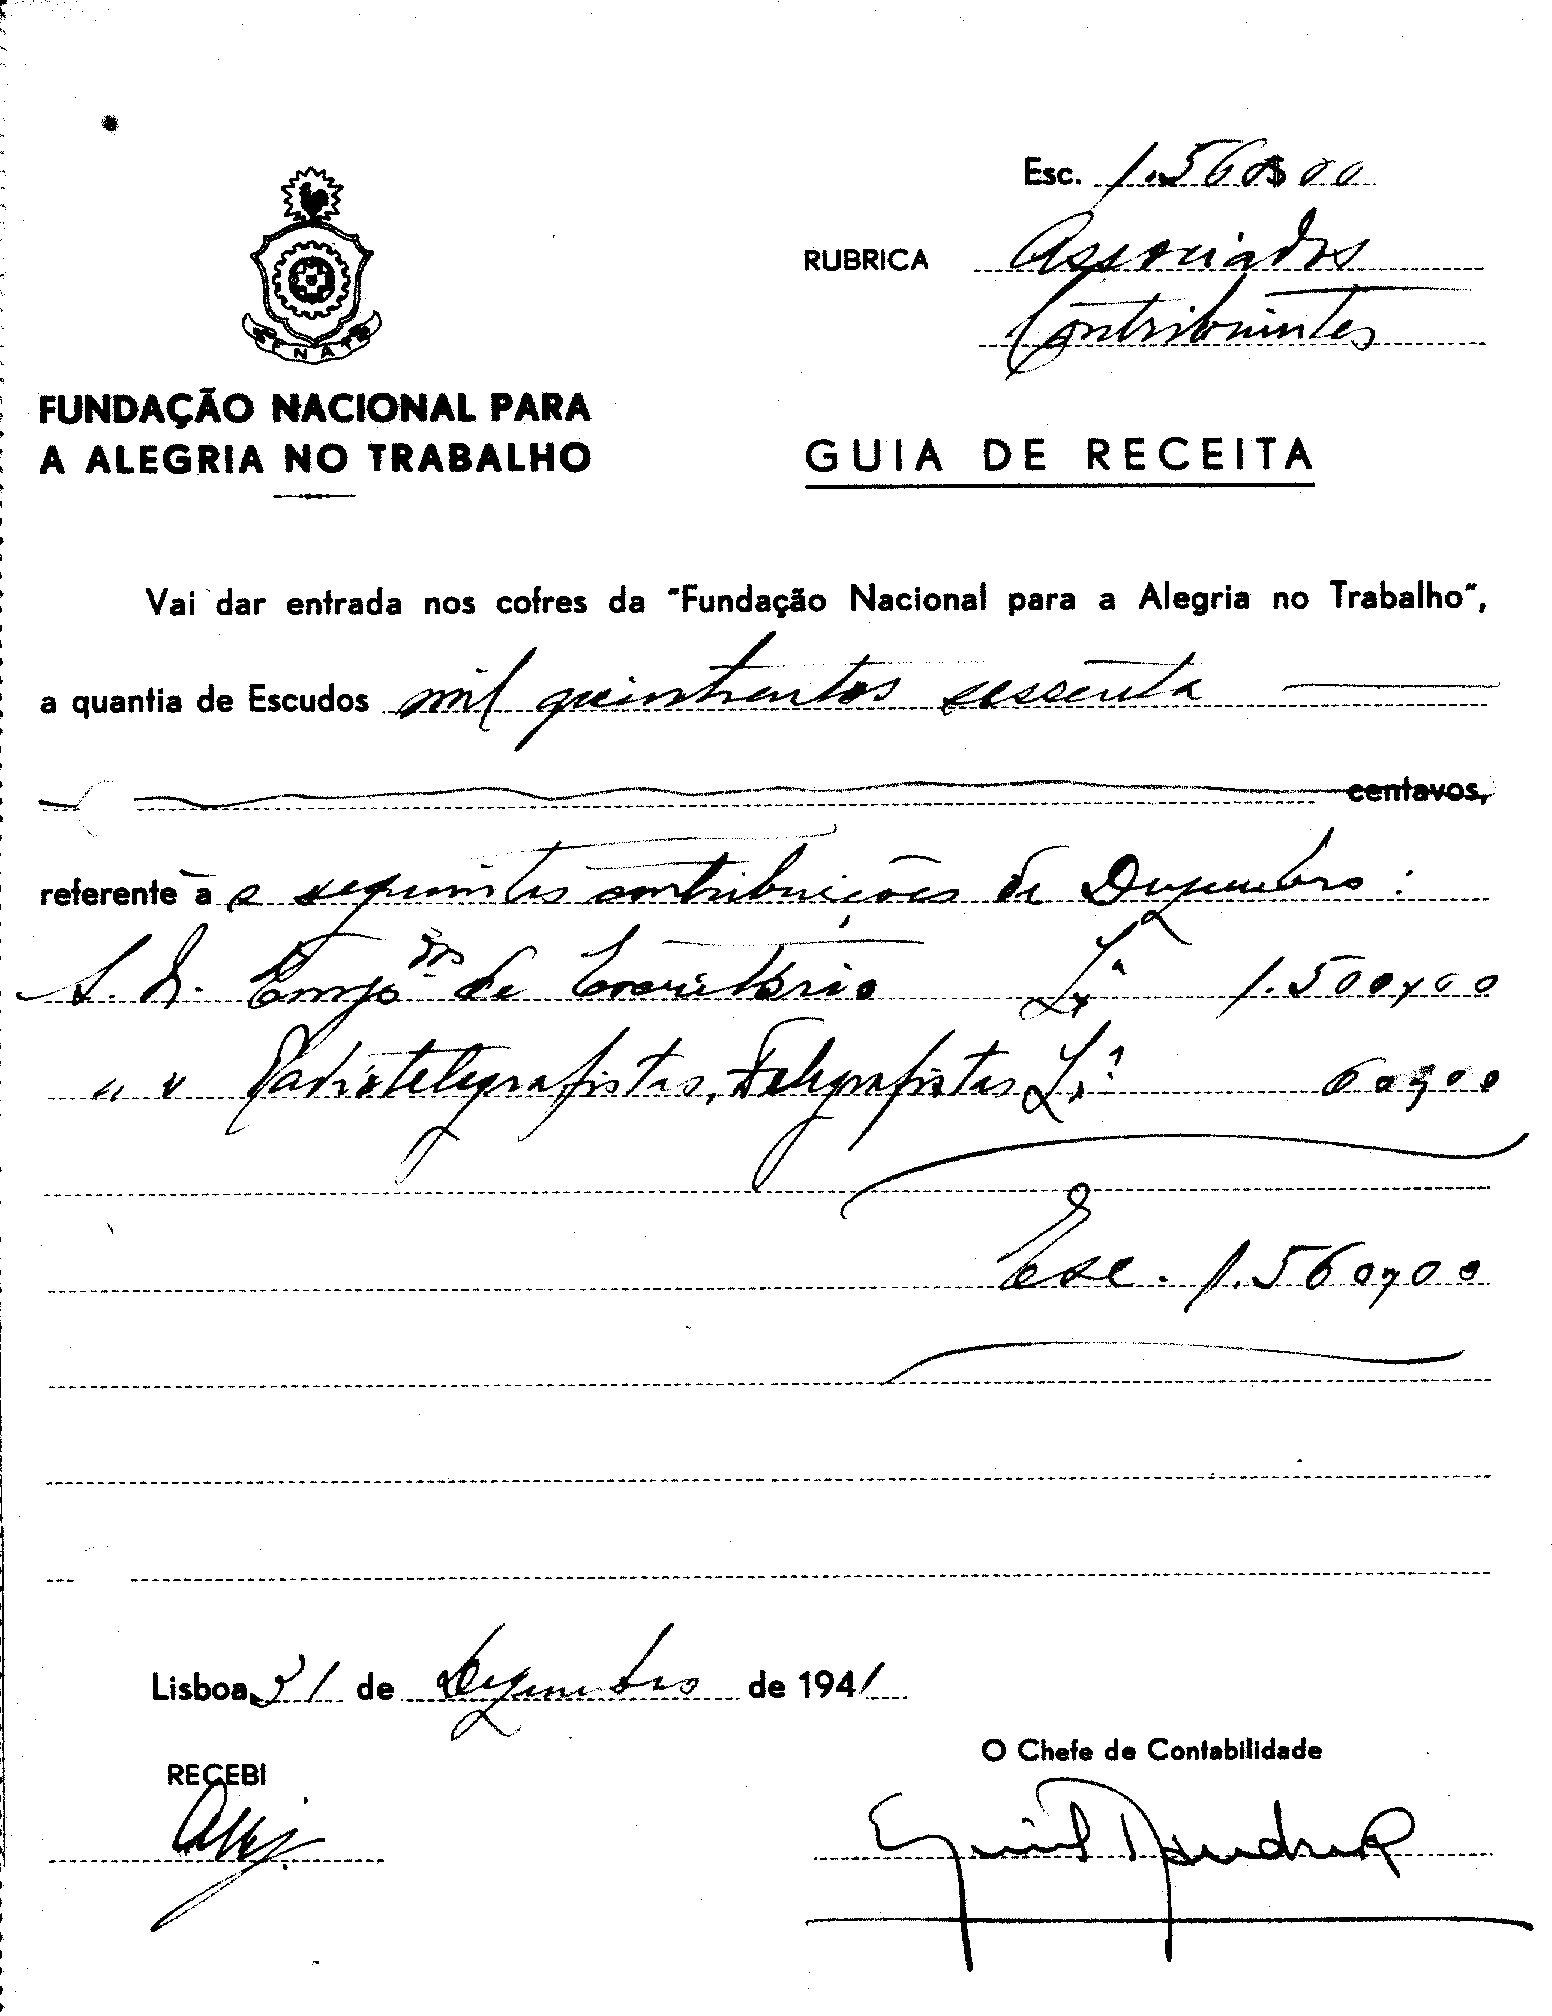 Esc. 1.560$00
RUBRICA Associados
Contribuintes
FENAT
FUNDAÇÃO NACIONAL PARA
A ALEGRIA NO TRABALHO
GUIA DE RECEITA
Vai dar entrada nos cofres da "Fundação Nacional para a Alegria no Trabalho",
a quantia de Escudos mil quinhentos sessenta
centavos,
referente a s seguintes contribuições de Dezembro:
S. N. Empdos de Escritório Lxa 1.500,00
" " Radiotelegrafistas, Telegrafistas Lxa 60,00
Esc. 1.560,00
Lisboa, 31 de Dezembro de 1941
O Chefe de Contabilidade
RECEBI